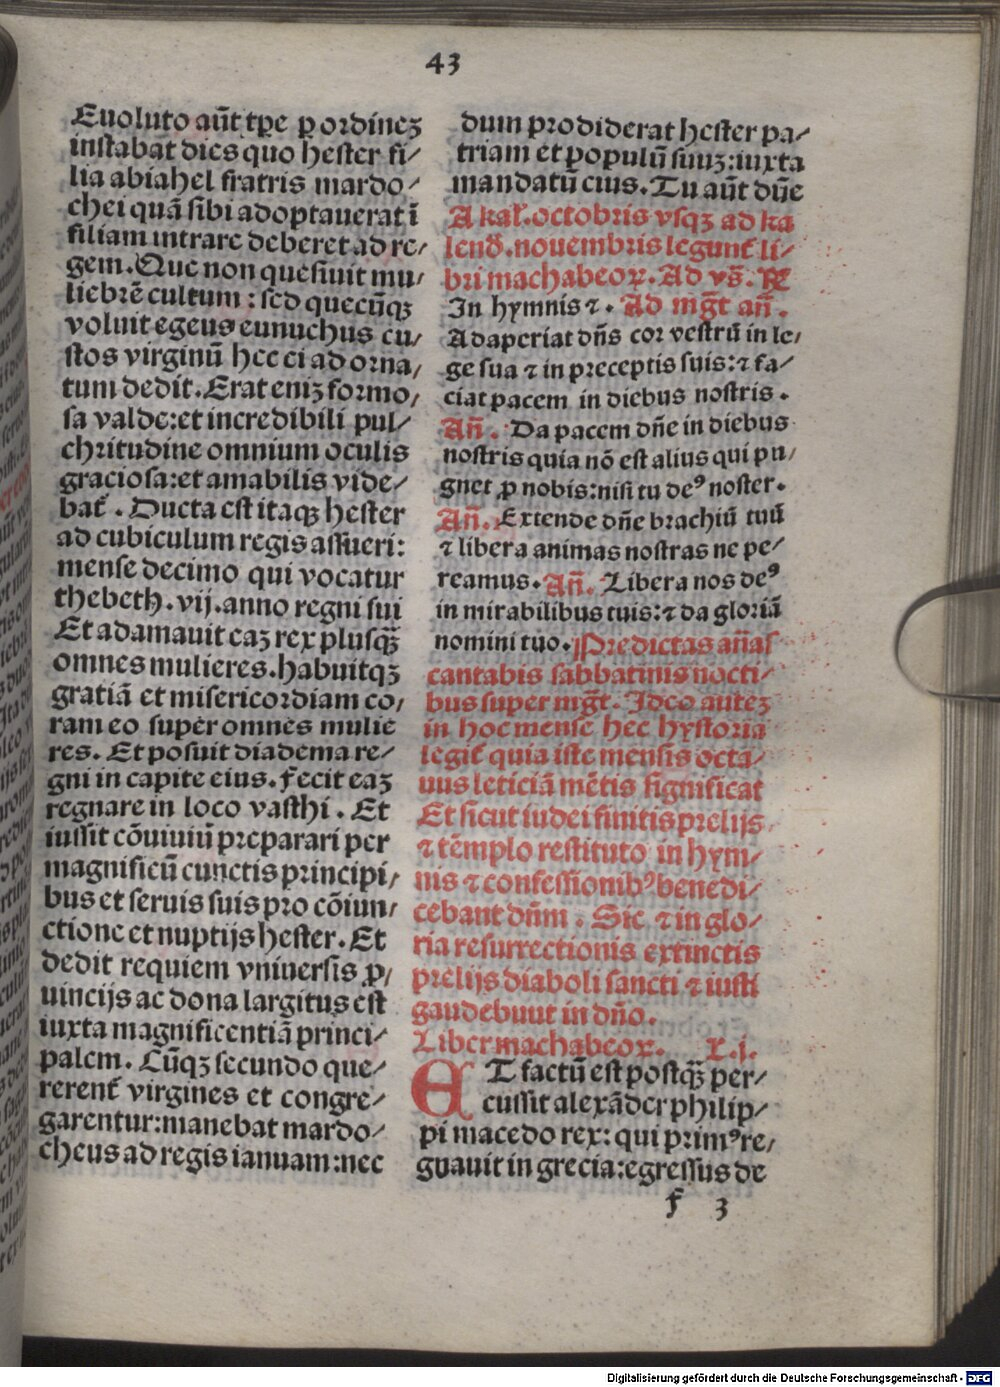 43
Euoluto aūt tp̄e ꝑ ordineꝫ
instabāt dies quo hester fi⸗
lia abiahel fratris mardo⸗
chei quā sibi adoptauerat ī
filiam intrare deberet ad re⸗
gem. Que non quesiuit mu⸗
liebrē cultum: sed quecūqꝫ
voluit egeus eunuchus cu⸗
stos virginū hec ei ad orna⸗
tum dedit. Erat eniꝫ formo⸗
sa valde: et incredibili pul⸗
chritudine omnium oculis
graciosa: et amabilis vide⸗
bat̄. Ducta est itaqꝫ hester
ad cubiculum regis assueri:
mense decimo qui vocatur
thebeth. vij. anno regni sui
Et adamauit eaꝫ rex plusqꝫ̄
omnes mulieres. habuitqꝫ
gratiā et misericordiam co⸗
ram eo super omnes mulie
res. Et posuit diadema re⸗
gni in capite eius. fecit eaꝫ
regnare in loco vasthi. Et
iussit cōuiuiū preparari per
magnificū cunctis principi⸗
bus et seruis suis pro cōiun⸗
ctione et nuptijs hester. Et
dedit requiem vniuersis ꝓ⸗
uincijs ac dona largitus est
iuxta magnificentiā princi⸗
palem. Cūqꝫ secundo que⸗
rerent̄ virgines et congre⸗
garentur: manebat mardo⸗
cheus ad regis ianuam: nec
dum prodiderat hester pa⸗
triam et populū suuꝫ: iuxta
mandatū eius. Tu aūt dn̄e
A kal̄. octobris vsqꝫ ad ka
lend̄. nouembris legunt̄ li⸗
bri machabeoꝝ. Ad vs̄. ℞
In hymnis ⁊. Ad mḡt an̄.
Adaperiat dn̄s cor vestrū in le⸗
ge sua ⁊ in preceptis suis: ⁊ fa⸗
ciat pacem in diebus nostris.
An̄. Da pacem dn̄e in diebus
nostris quia nō est alius qui pu⸗
gnet ꝓ nobis: nisi tu deꝰ noster.
An̄. Extende dn̄e brachiū tuū
⁊ libera animas nostras ne pe⸗
reamus. An̄. Libera nos deꝰ
in mirabilibus tuis: ⁊ da gloriā
nomini tuo. Predictas an̄as
cantabis sabbatinis nocti⸗
bus super mḡt. Ideo auteꝫ
in hoc mense hec hystoria
legit̄ quia iste mensis octa⸗
uus leticiā mētis significat
Et sicut iudei finitis prelijs
⁊ tēmplo restituto in hym⸗
nis ⁊ confessionibꝰ benedi⸗
cebant dn̄m. Sic ⁊ in glo⸗
ria resurrectionis extinctis
prelijs diaboli sancti ⁊ iusti
gaudebuut in dn̄o.
Liber machabeoꝝ. ꝶ. j.
ET factū est postqꝫ̄ per⸗
cussit alexāder philip⸗
pi macedo rex: qui primꝰ re⸗
guauit in grecia: egressus de
f 3
Digitalisierung gefördert durch die Deutsche Forschungsgemeinschaft - DFG